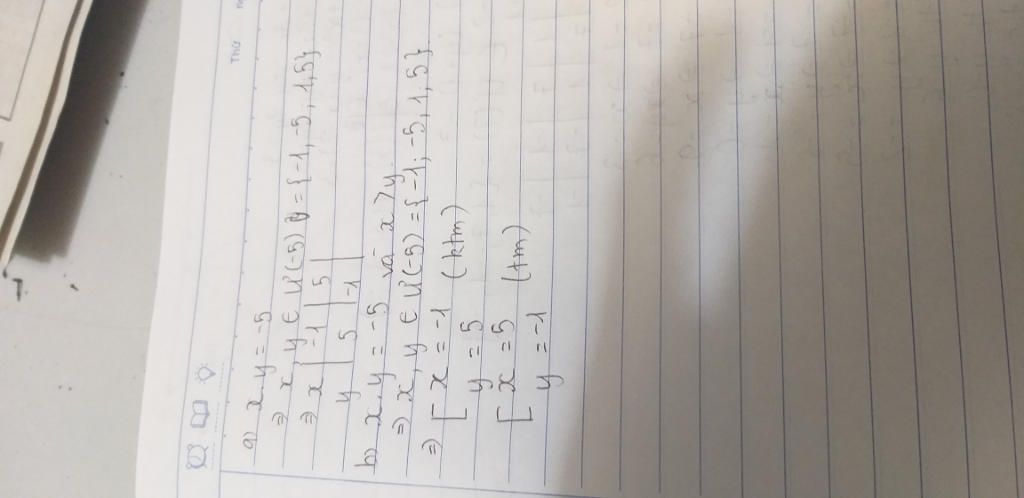 Thứ
a) x.y = -5
⇒ x, y ∈ Ư(-5) = {-1, -5, 1, 5}
⇒ x | -1 | 5
y | 5 | -1 |
b) x.y = -5 và x > y
⇒ x, y ∈ Ư(-5) = {-1; -5, 1, 5}.
⇒ [ x = -1 (ktm)
y = 5
[ x = 5 (tm)
y = -1